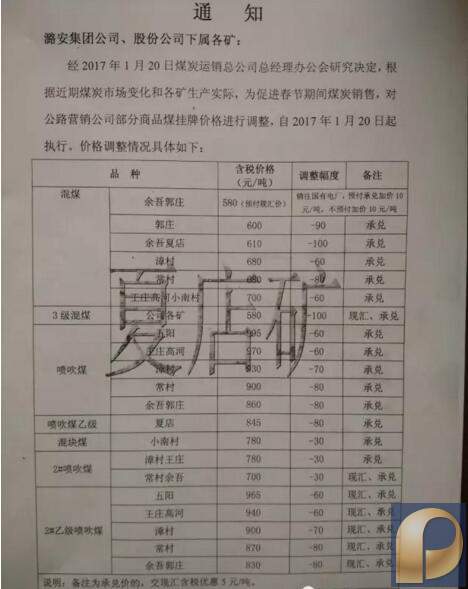 通 知
潞安集团公司、股份公司下属各矿：
经 2017 年 1 月 20 日煤炭运销总公司总经理办公会研究决定，根
据近期煤炭市场变化和各矿生产实际，为促进春节期间煤炭销售，对
公路营销公司部分商品煤挂牌价格进行调整，自 2017 年 1 月 20 日起
执行。价格调整情况具体如下：
品 种 含税价格（元/吨） 调整幅度 备注
混煤 余吾郭庄 580（预付现汇价） 销往国有电厂，预付承兑加价 10 元/吨，不预付加价 10 元/吨
郭庄 600 -90 承兑
余吾夏店 610 -100 承兑
漳村 680 -60 承兑
常村 680 -80 承兑
王庄高河小南村 700 -60 承兑
3 级混煤 公司各矿 580 -100 现汇、承兑
喷吹煤 五阳 -60 承兑
王庄高河 970 -60 承兑
漳村 930 -70 承兑
常村 900 -80 承兑
余吾郭庄 860 -80 承兑
喷吹煤乙级 夏店 845 -80 承兑
混块煤 小南村 780 -30 承兑
2#喷吹煤 漳村王庄 780 -30 承兑
常村余吾 700 -30 现汇、承兑
2#乙级喷吹煤 五阳 965 -60 现汇、承兑
王庄高河 940 -60 现汇、承兑
漳村 900 -70 现汇、承兑
常村 870 -80 现汇、承兑
余吾郭庄 830 -80 现汇、承兑
说明：备注为承兑价的，交现汇含税优惠 5 元/吨。
夏店矿